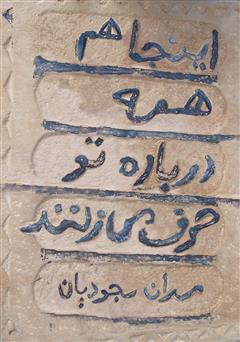 اینجا هم
همه
درباره تو
حرف می‌زنند
مهران سجودیان